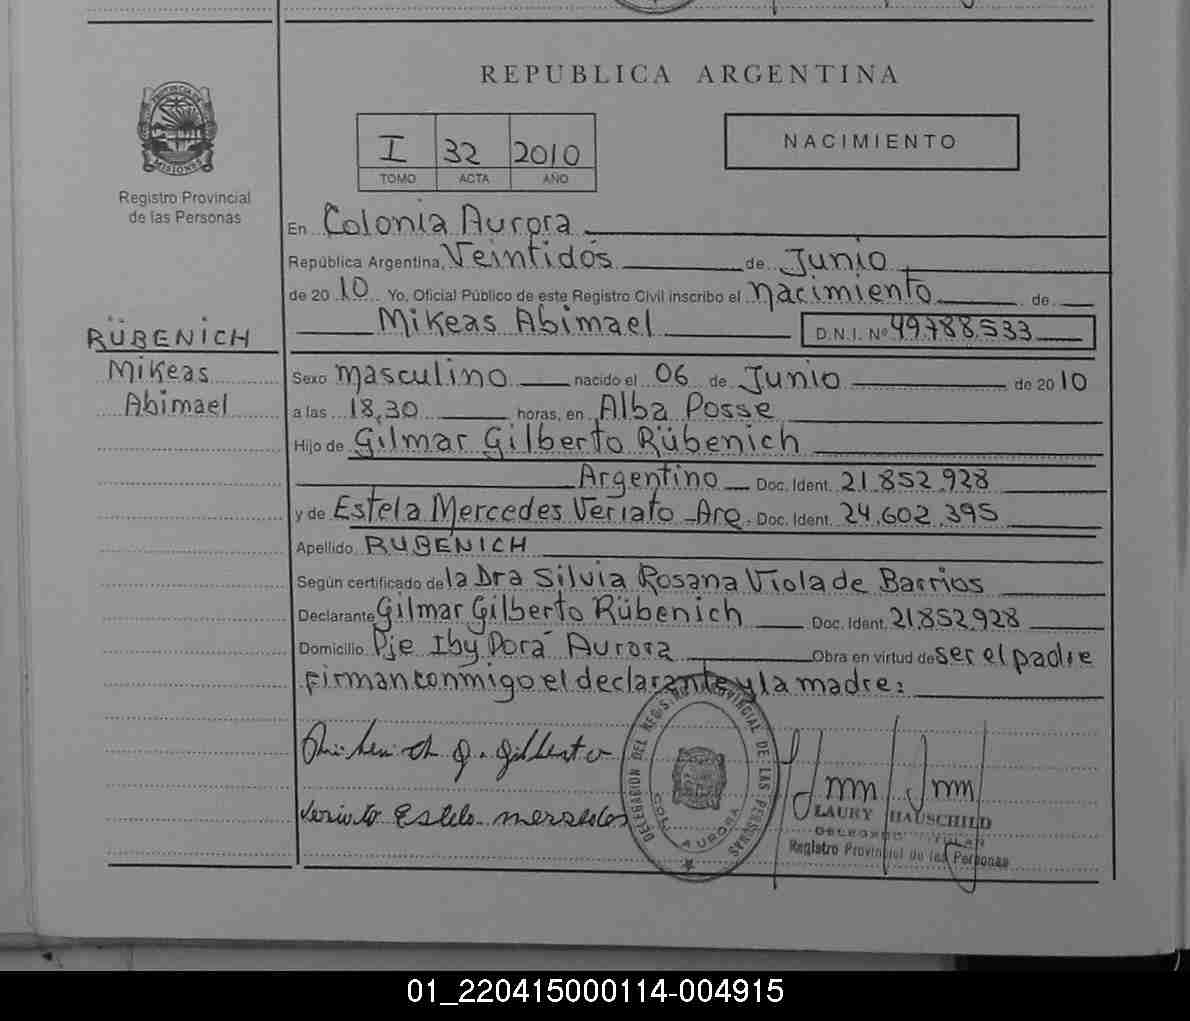 REPUBLICA ARGENTINA
PROVINCIA DE MISIONES
Registro Provincial
de las Personas
I 32 2010
TOMO ACTA AÑO
NACIMIENTO
En Colonia Aurora
República Argentina, Veintidós de Junio
de 2010 Yo, Oficial Público de este Registro Civil inscribo el nacimiento de
Mikeas Abimael D.N.I. Nº 49.788.533
RÜBENICH
Mikeas
Abimael
Sexo masculino nacido el 06 de Junio de 2010
a las 18,30 horas, en Alba Posse
Hijo de Gilmar Gilberto Rübenich
Argentino Doc. Ident. 21.852.928
y de Estela Mercedes Veriato - Arg. Doc. Ident. 24.602.395
Apellido RUBENICH
Según certificado de la Dra Silvia Rosana Viola de Barrios
Declarante Gilmar Gilberto Rübenich Doc. Ident. 21.852.928
Domicilio Pje Iby Porá Aurora Obra en virtud de ser el padre
firman conmigo el declarante y la madre:
G. Gilberto
Estela mercedes
DELEGACION DEL REGISTRO PROVINCIAL DE LAS PERSONAS
COL. AURORA
LAURY HAUSCHILD
Registro Provincial de las Personas
01_220415000114-004915